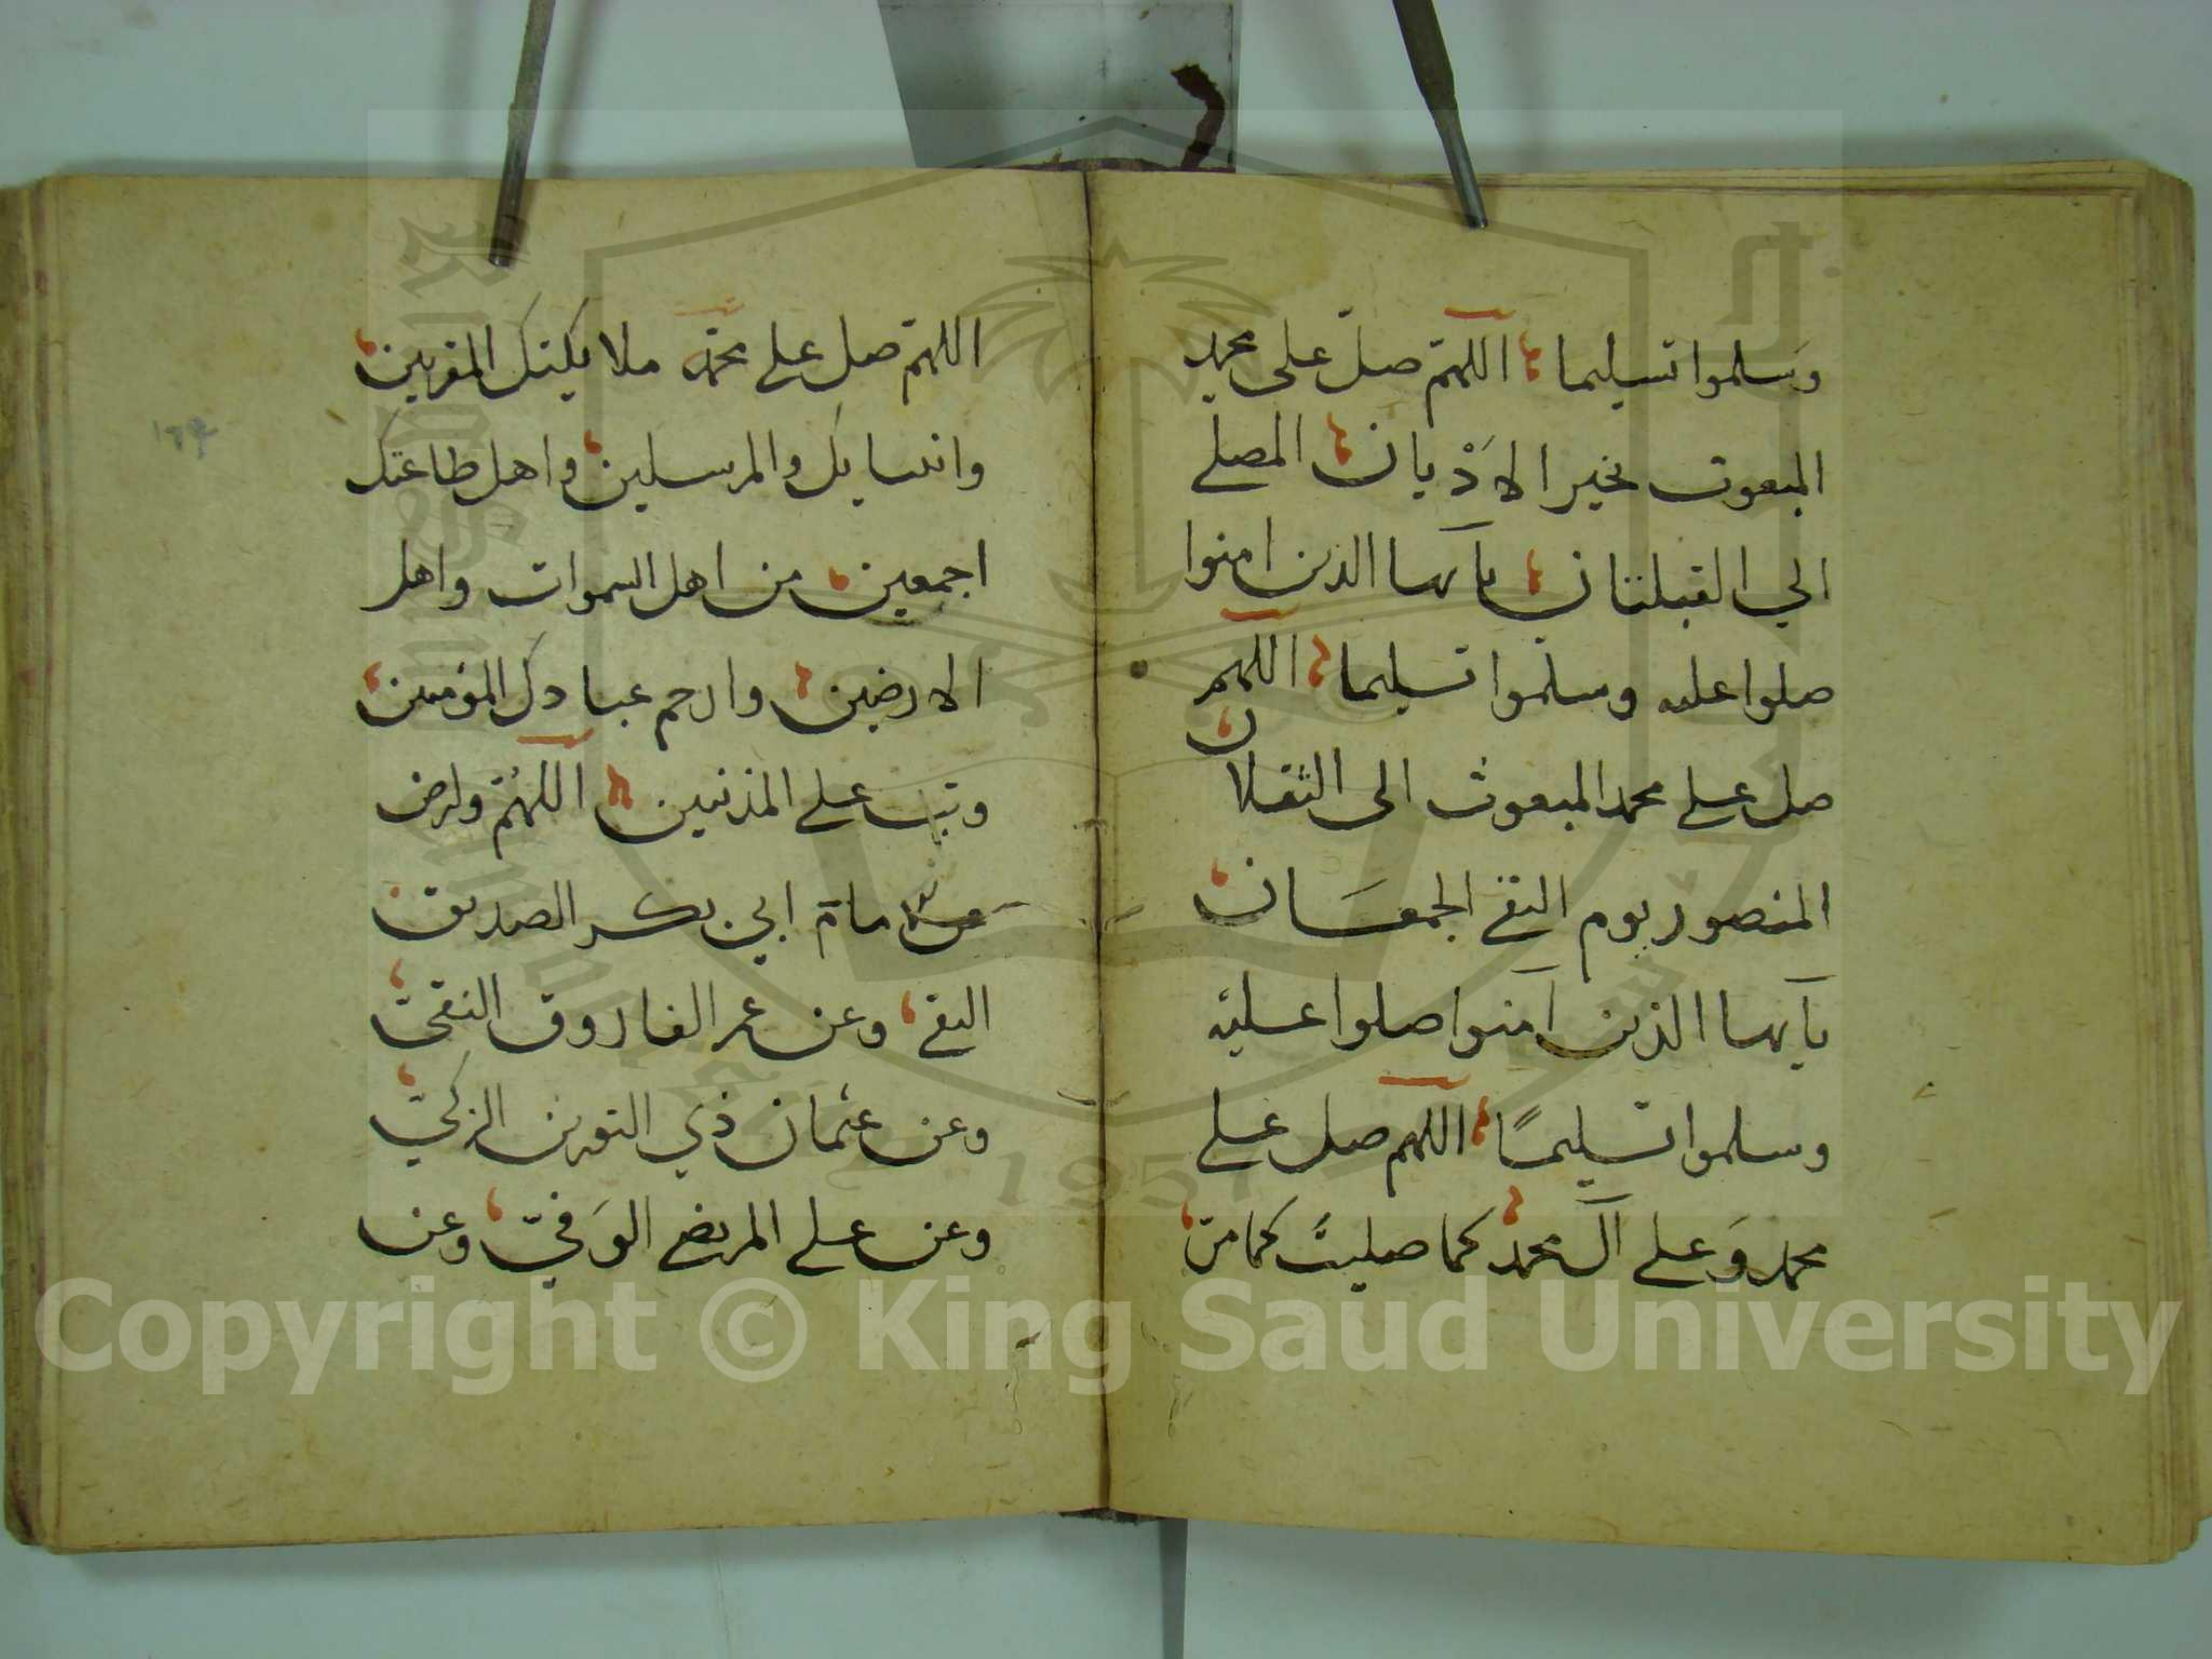 وسلموا تسليما اللهم صل على محمد
المبعوث بخير الاديان المصلي
الي القبلتان يآيها الذين امنوا
صلوا عليه وسلموا تسليما اللهم
صل علي محمد المبعوث الى الثقلان
المنصور يوم التقي الجمعان
يآيها الذين آمنوا صلوا عليه
وسلموا تسليمًا اللهم صل علي
محمد وَعلي آل محمد كما صليت كما مرّ
اللهم صل علي محمد ملايكتك المقربين
وانبيايك والمرسلين واهل طاعتك
اجمعين من اهل السموات واهل
الارضين وارحم عبادك المؤمنين
وتب علي المذنبين اللهُمّ وارض
مام ابي بكر الصديق
التقي وعن عمر الفاروق النقيّ
وعن عثمان ذي النورين الزكيّ
وعن علي المرتضي الوَفيّ وعن
Copyright © King Saud University
1957